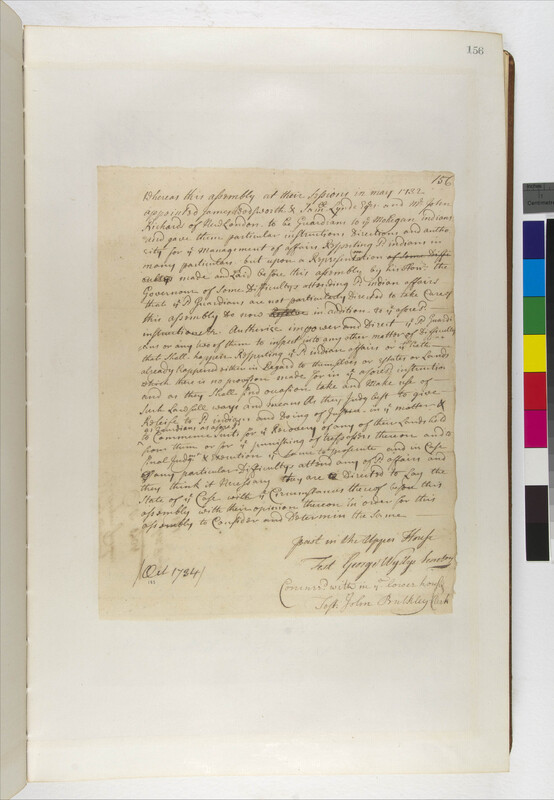 156
156
Whereas this assembly at their Sessions in may 1782
appointed James Wadsworth & Saml Lynde Esqrs and Mr John
Richard of New London to be Guardians to ye Mohegan Indians
and gave them particular instructions Directions and autho
rity for ye Management of affairs Respecting sd indians in
many particulars but upon a Representation of some Diffi
made and Laid before this assembly by his Honr the
Governour of Some Difficultys attending sd indian affairs
that ye sd Guardians are not particularly Directed to take Care of
this assembly do now in addition to ye aforesd
instructions Authorize impower and Direct ye sd Guardi
ans or any two of them to inspect into any other matter of Difficulty
that Shall happen Respecting ye sd indian affairs or if
already happened either in Regard to themselves or Estates or Lands
which there is no provision made for in ye aforesd instructions
and as they Shall find occasion take and Make use of
Such Lawfull ways and means As they Judg best to give
Releife to sd indians and Doing of Justice in ye matter &
as Guardians aforesd
to Commence suits for ye Recovery of any of their Lands held
from them or for ye punishing of tresspasses thereon and to
final Judgmt & Execution ye same to prosecute and in Case
of any particular Difficultys attend any of sd affairs and
they think it Necessary they are Directed to Lay the
State of ye Case with ye Circumstances thereof before this
assembly with their opinion thereon in order for this
assembly to Consider and Determin the Same
past in the Upper House
Test George Wyllys Secretary
Concurrd with in ye lower house
Test John Bulkley Clerk
Oct 1734